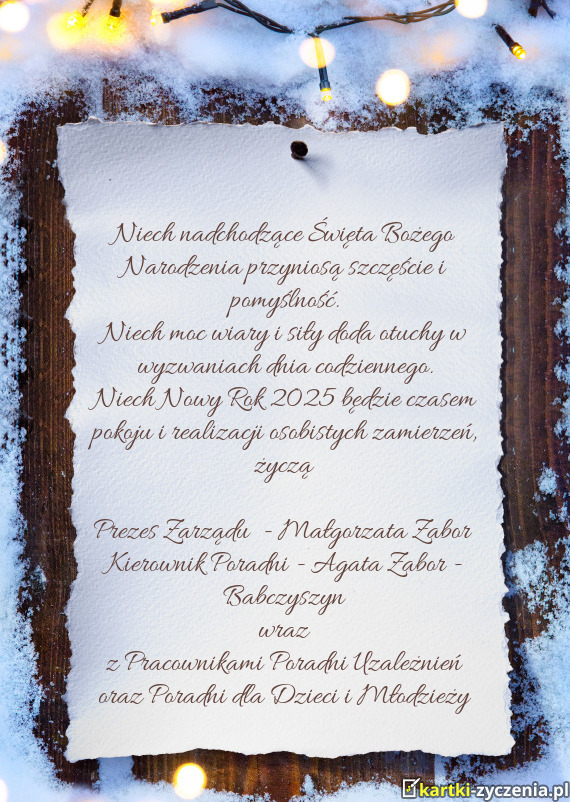 Niech nadchodzące Święta Bożego
Narodzenia przyniosą szczęście i
pomyślność.
Niech moc wiary i siły doda otuchy w
wyzwaniach dnia codziennego.
Niech Nowy Rok 2025 będzie czasem
pokoju i realizacji osobistych zamierzeń,
życzą
Prezes Zarządu - Małgorzata Zabor
Kierownik Poradni - Agata Zabor -
Babczyszyn
wraz
z Pracownikami Poradni Uzależnień
oraz Poradni dla Dzieci i Młodzieży
kartki-zyczenia.pl